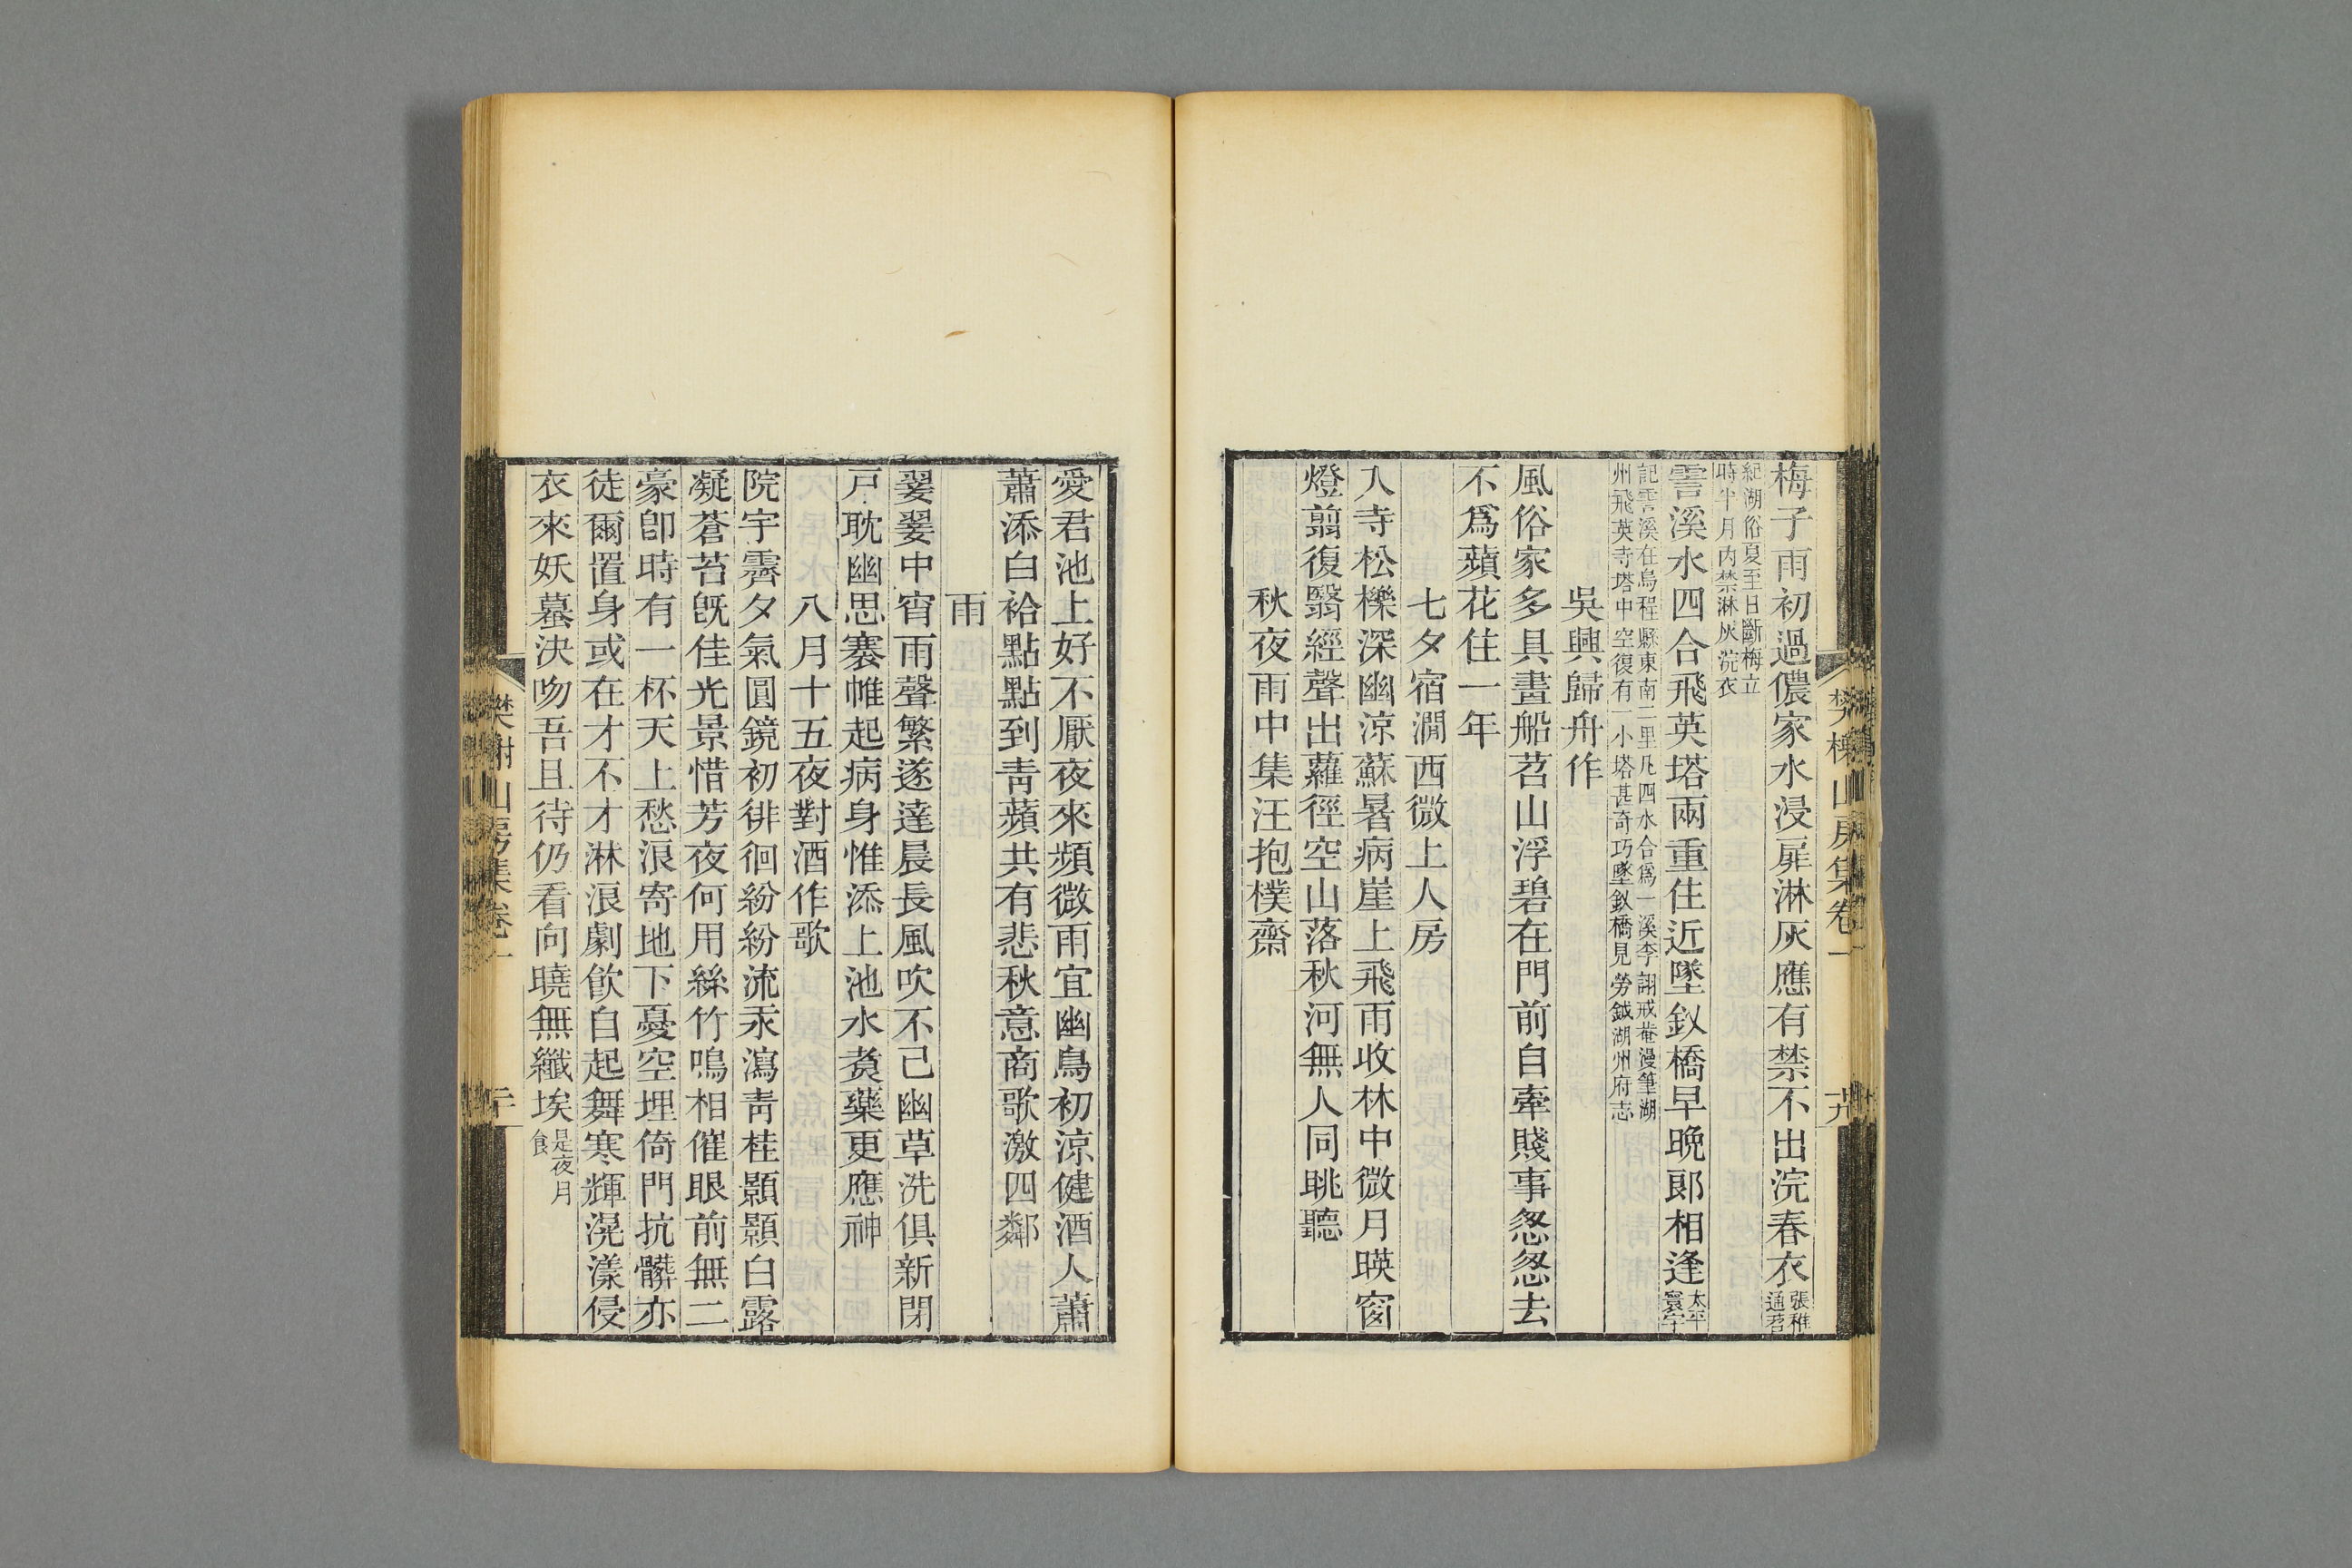 樊榭山房集卷一
十九
梅子雨初過儂家水浸扉淋灰應有禁不出浣春衣張稚通苕
紀湖俗夏至日斷梅立
時半月內禁淋灰浣衣
霅溪水四合飛英塔兩重住近墜釵橋早晚郞相逢太平寰宇
記霅溪在烏程縣東南二里凡四水合爲一溪李詡戒菴漫筆湖
州飛英寺塔中空復有一小塔甚奇巧墜釵橋見勞鉞湖州府志
吳興歸舟作
風俗家多具畫船苕山浮碧在門前自牽賤事怱怱去
不爲蘋花住一年
七夕宿澗西微上人房
入寺松櫟深幽涼蘇暑病崖上飛雨收林中微月暎窗
燈翦復翳經聲出蘿徑空山落秋河無人同眺聽
秋夜雨中集汪抱樸齋
愛君池上好不厭夜來頻微雨宜幽鳥初涼健酒人蕭
蕭添白袷點點到靑蘋共有悲秋意商歌激四鄰
雨
翣翣中宵雨聲繁遂達晨長風吹不已幽草洗俱新閉
戸耽幽思褰帷起病身惟添上池水煑藥更應神
八月十五夜對酒作歌
院宇霽夕氣圓鏡初徘徊紛紛流汞瀉靑桂顥顥白露
凝蒼苔旣佳光景惜芳夜何用絲竹鳴相催眼前無二
豪卽時有一杯天上愁浪寄地下憂空埋倚門抗髒亦
徒爾置身或在才不才淋浪劇飮自起舞寒輝滉漾侵
衣來妖蟇決吻吾且待仍看向曉無纖埃是夜月食
樊榭山房集卷一
二十